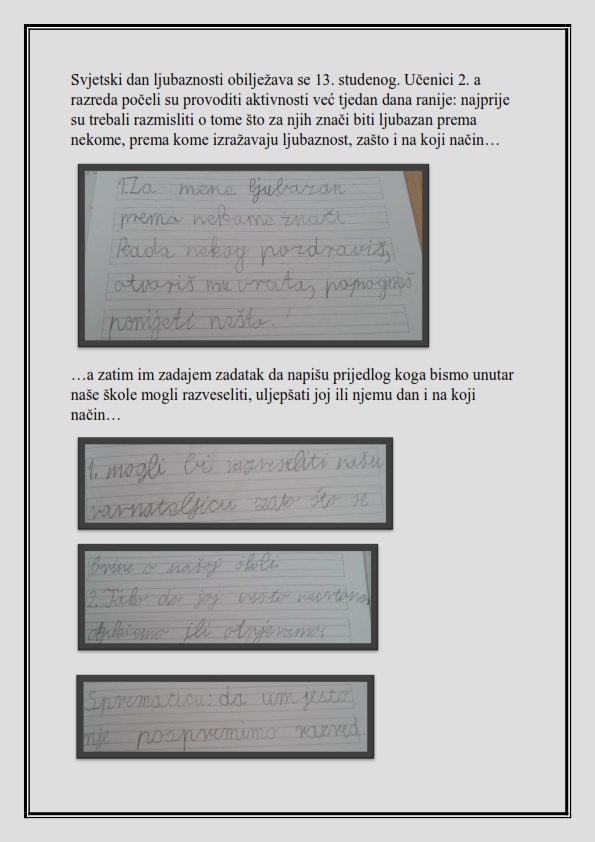 Svjetski dan ljubaznosti obilježava se 13. studenog. Učenici 2. a
razreda počeli su provoditi aktivnosti već tjedan dana ranije: najprije
su trebali razmisliti o tome što za njih znači biti ljubazan prema
nekome, prema kome izražavaju ljubaznost, zašto i na koji način…
1. Za mene ljubazan
prema nekome znači
kada nekog pozdraviš,
otvoriš mu vrata, pomogneš
ponijeti nešto.
…a zatim im zadajem zadatak da napišu prijedlog koga bismo unutar
naše škole mogli razveseliti, uljepšati joj ili njemu dan i na koji
način…
1. mogli bi razveseliti našu
ravnateljicu zato što se
brine o našoj školi.
2. Tako da joj nešto nacrtamo,
otplešemo ili otpjevamo
Spremačicu: da umjesto
nje pospremimo razred.